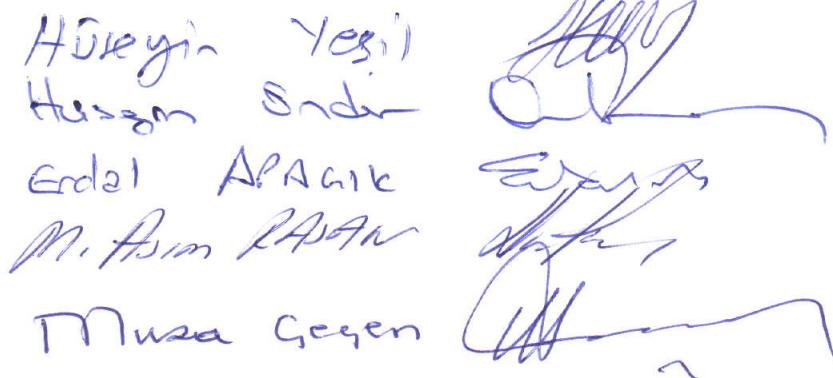 Hüseyin Yeşil
Hüseyin Önder
Erdal APAÇIK
M. Asım RAJAN
Musa Geçen